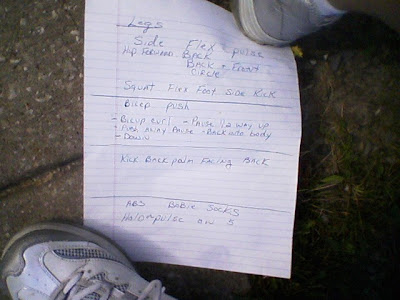 Legs
Side Flex + pulse
Hip Forward Back
Back + Front
Circle
Squat Flex Foot Side Kick
Bicep push
- Bicup curl - Pause 1/2 way up
- Push away Pause - Back into body
- Down
Kick Back palm Facing Back
ABS Bobie Socks
Hold + pulse on 5